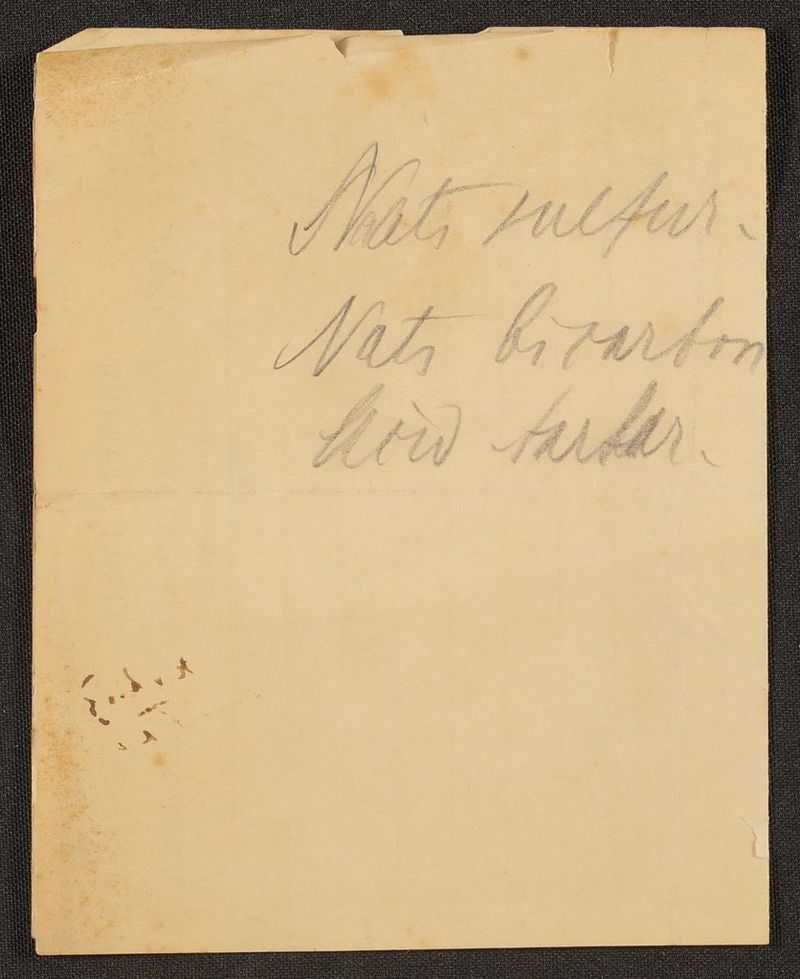 Nats sulfur.
Nats bicarbon
Acid tartar.